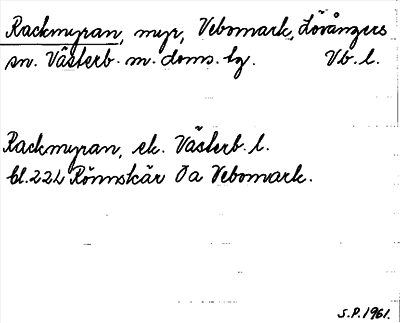 Rackmyran, myr, Vebomark, Lövångers
sn. Västerb. m. doms. bg. Vb. l.
Rackmyran, ek. Västerb. l.
bl. 22L Rönnskär Öa Vebomark.
S.P. 1961.